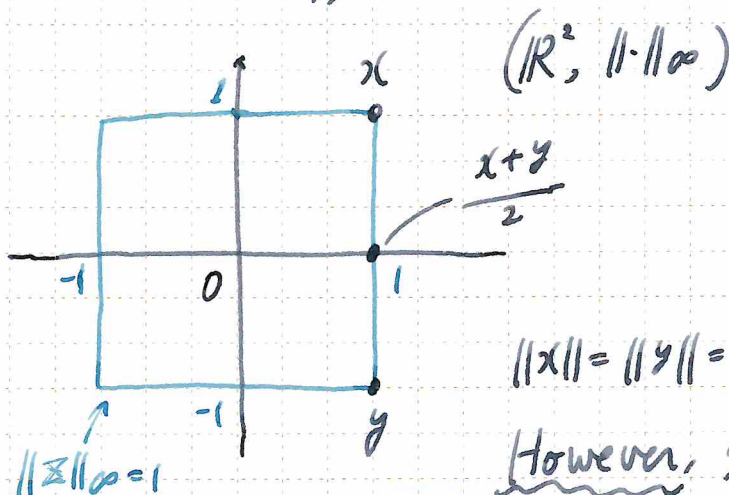 (ℝ², ‖·‖∞)
x
1
x+y
2
-1
0
1
‖x‖ = ‖y‖ =
-1
y
‖z‖∞=1
However,